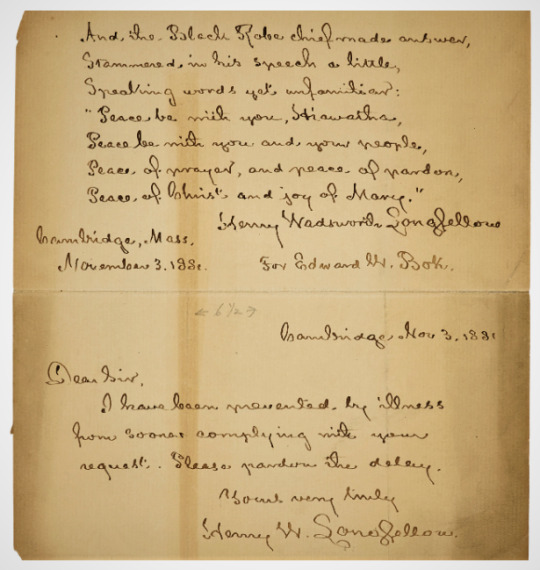 And the Black Robe chief made answer,
Stammered in his speech a little,
Speaking words yet unfamiliar:
"Peace be with you, Hiawatha,
Peace be with you and your people,
Peace of prayer, and peace of pardon,
Peace of Christ and joy of Mary."
Henry Wadsworth Longfellow
Cambridge, Mass.
November 3. 1881.
For Edward W. Bok.
Cambridge, Nov 3. 1881
Dear Sir,
I have been prevented by illness
from sooner complying with your
request. Please pardon the delay.
Yours very truly
Henry W. Longfellow.